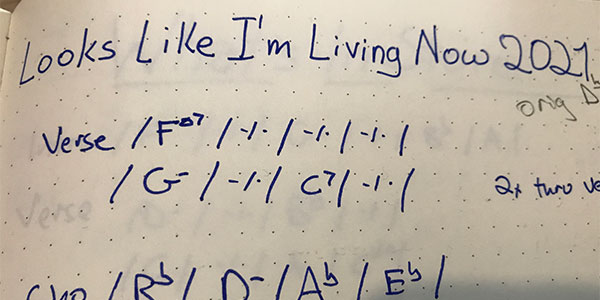 Looks Like I'm Living Now 2021
orig D♭
Verse / F△7 / -/. / -/. / -/. /
/ G- / -/. / C7 / -/. /
2x thru
/ B♭ / D- / A♭ / E♭ /